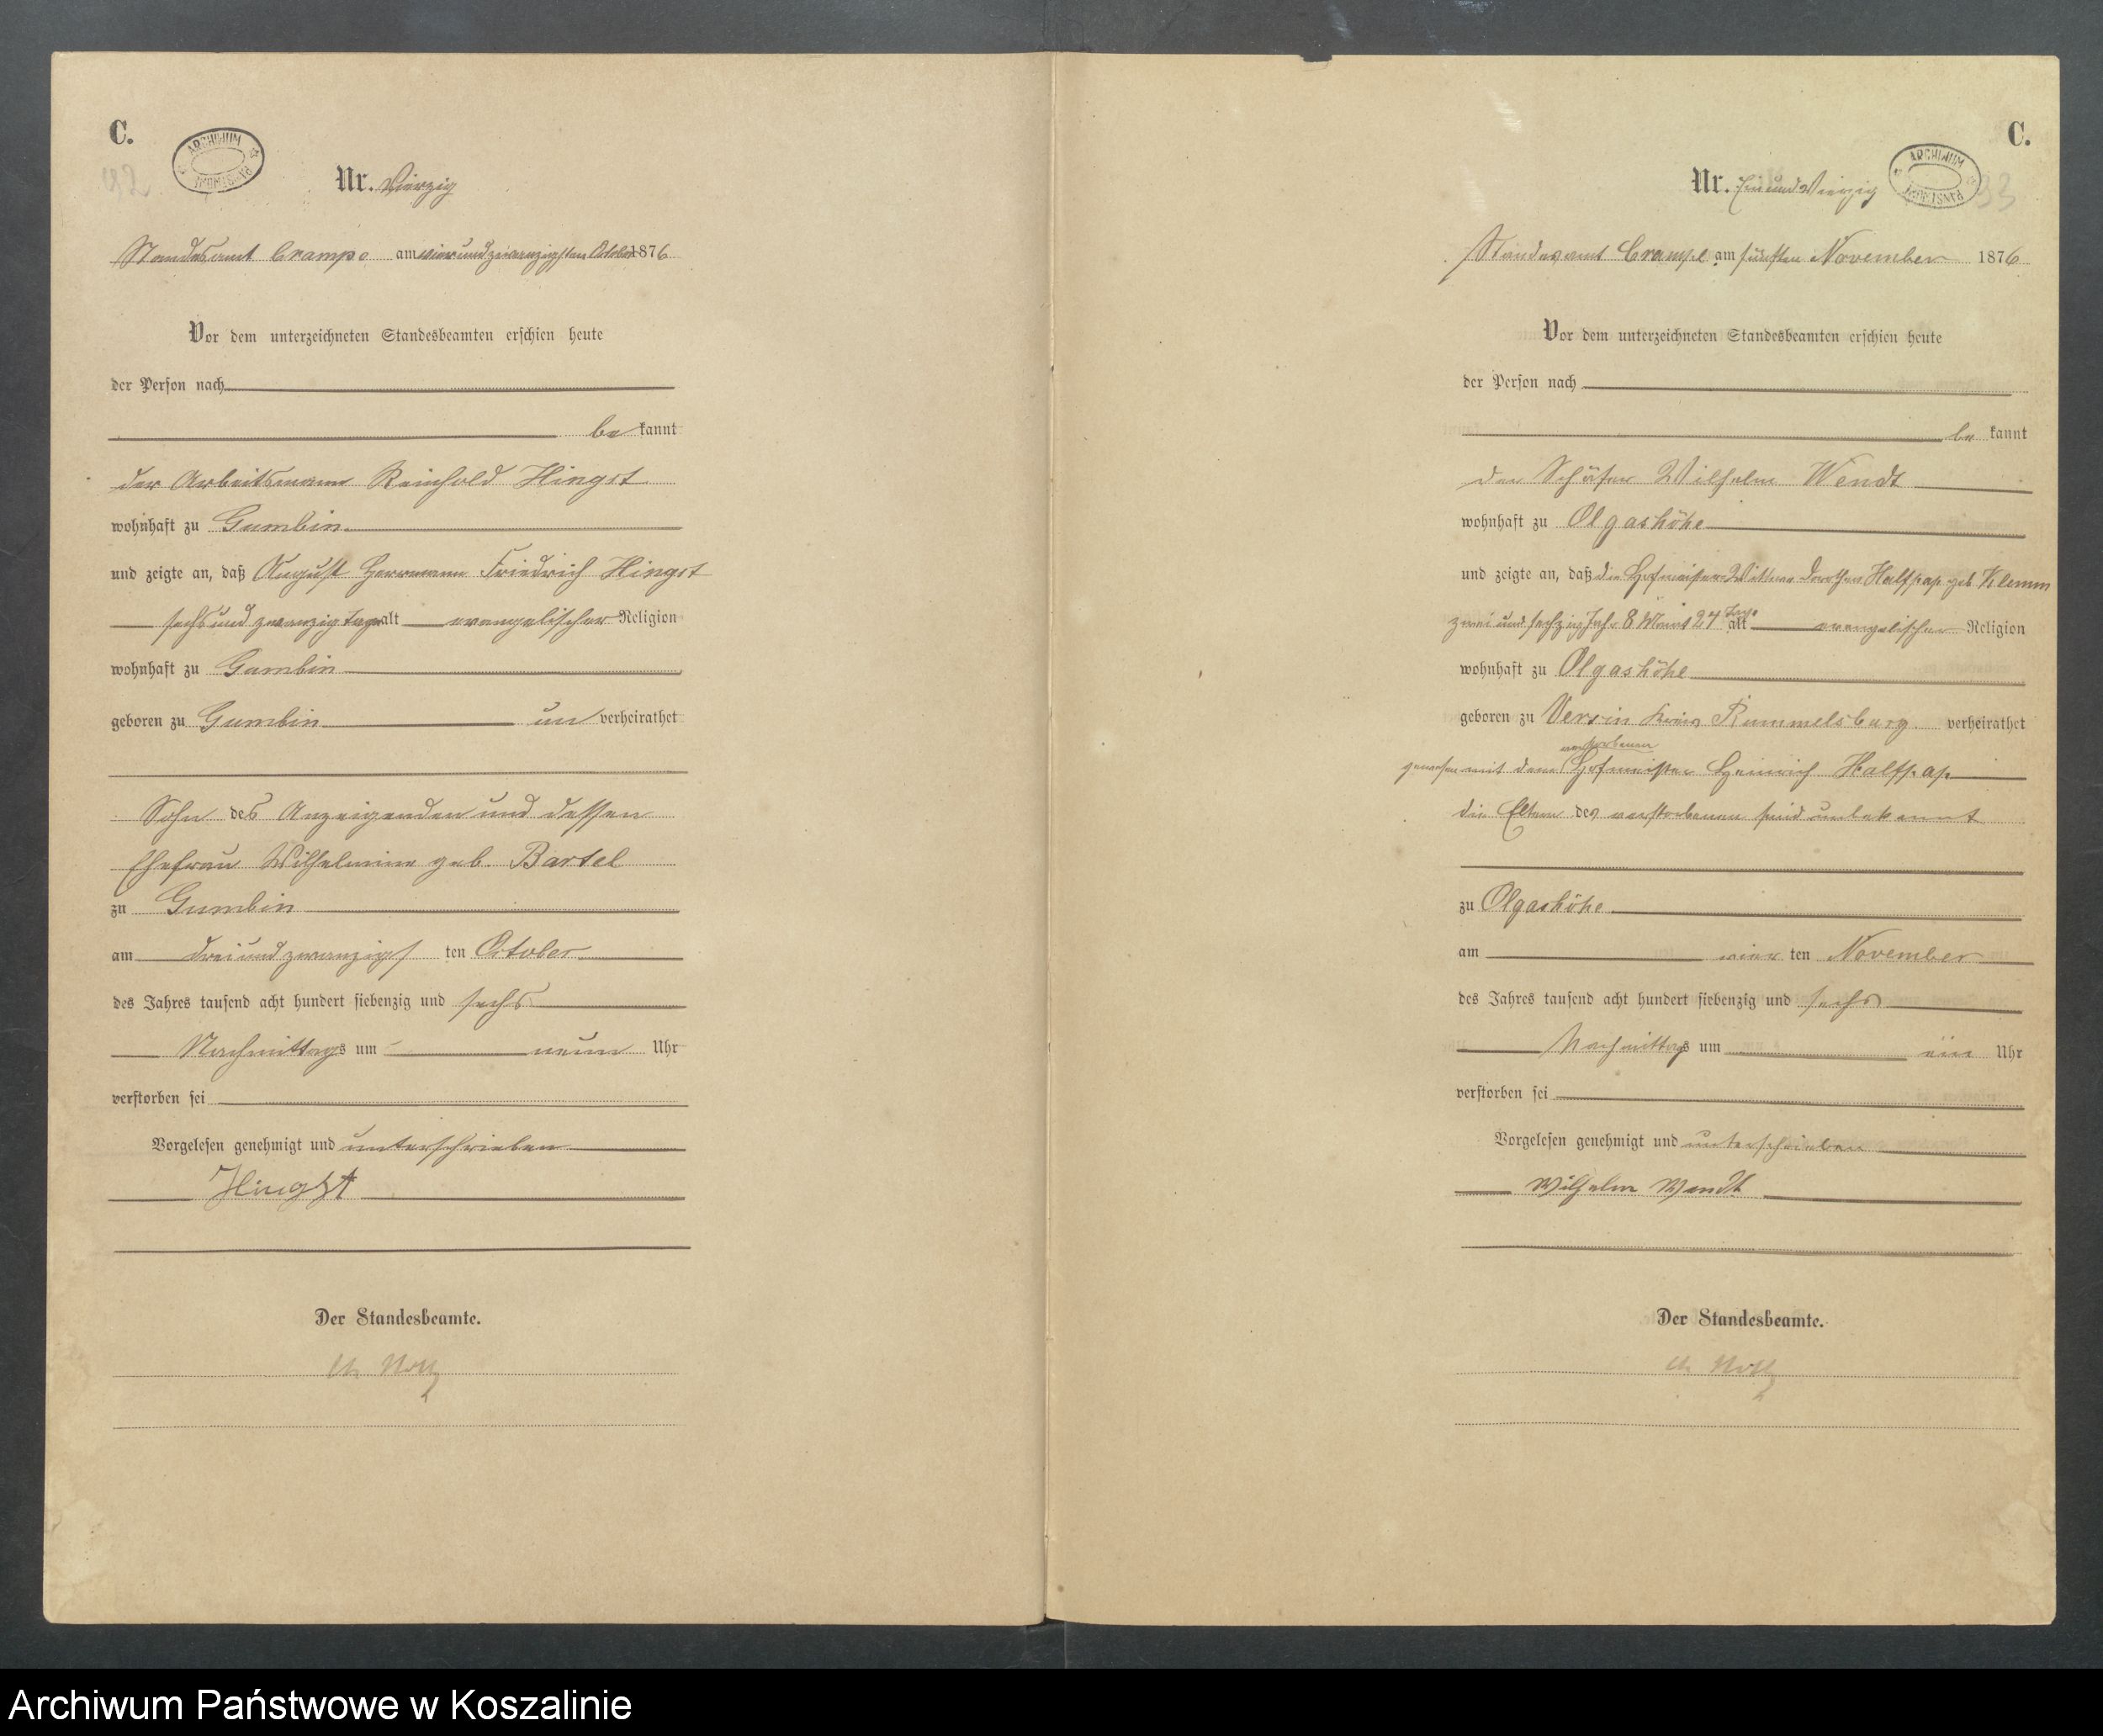 C.
ARCHIWUM PAŃSTWOWE
92
Nr. Vierzig
Standesamt Crampe am vier und zwanzigsten October 1876
Vor dem unterzeichneten Standesbeamten erschien heute
der Person nach
be kannt
der Arbeitsmann Reinhold Hingst
wohnhaft zu Gumbin
und zeigte an, daß August Herrmann Friedrich Hingst
sechs und zwanzig Tage alt evangelischer Religion
wohnhaft zu Gumbin
geboren zu Gumbin un verheirathet
Sohn des Anzeigenden und dessen
Ehefrau Wilhelmine geb. Bartel
zu Gumbin
am drei und zwanzigs ten October
des Jahres tausend acht hundert siebenzig und sechs
Nachmittags um neun Uhr
verstorben sei
Vorgelesen genehmigt und unterschrieben
Hingst
Der Standesbeamte.
C.
ARCHIWUM PAŃSTWOWE
93
Nr. Ein und Vierzig
Standesamt Crampe am fünften November 1876
Vor dem unterzeichneten Standesbeamten erschien heute
der Person nach
be kannt
der Schäfer Wilhelm Wendt
wohnhaft zu Olgashöhe
und zeigte an, daß die Hofmeister Wittwe Dorothea Halfpap geb Klemm
zwei und sechzig Jahr 8 Monat 27 Tage alt evangelischer Religion
wohnhaft zu Olgashöhe
geboren zu Versin Kreis Rummelsburg verheirathet
verstorbenen
gewesen mit dem Hofmeister Heinrich Halfpap
die Eltern der verstorbenen sind unbekannt
zu Olgashöhe
am vier ten November
des Jahres tausend acht hundert siebenzig und sechs
Nachmittags um ein Uhr
verstorben sei
Vorgelesen genehmigt und unterschrieben
Wilhelm Wendt
Der Standesbeamte.
Archiwum Państwowe w Koszalinie